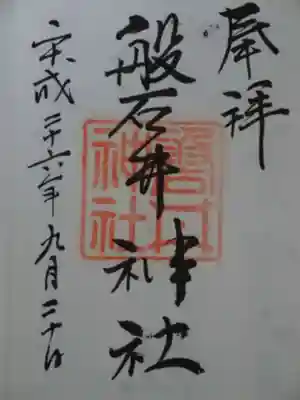 奉拝
磐井神社
平成二十六年九月二十日
磐井
神社